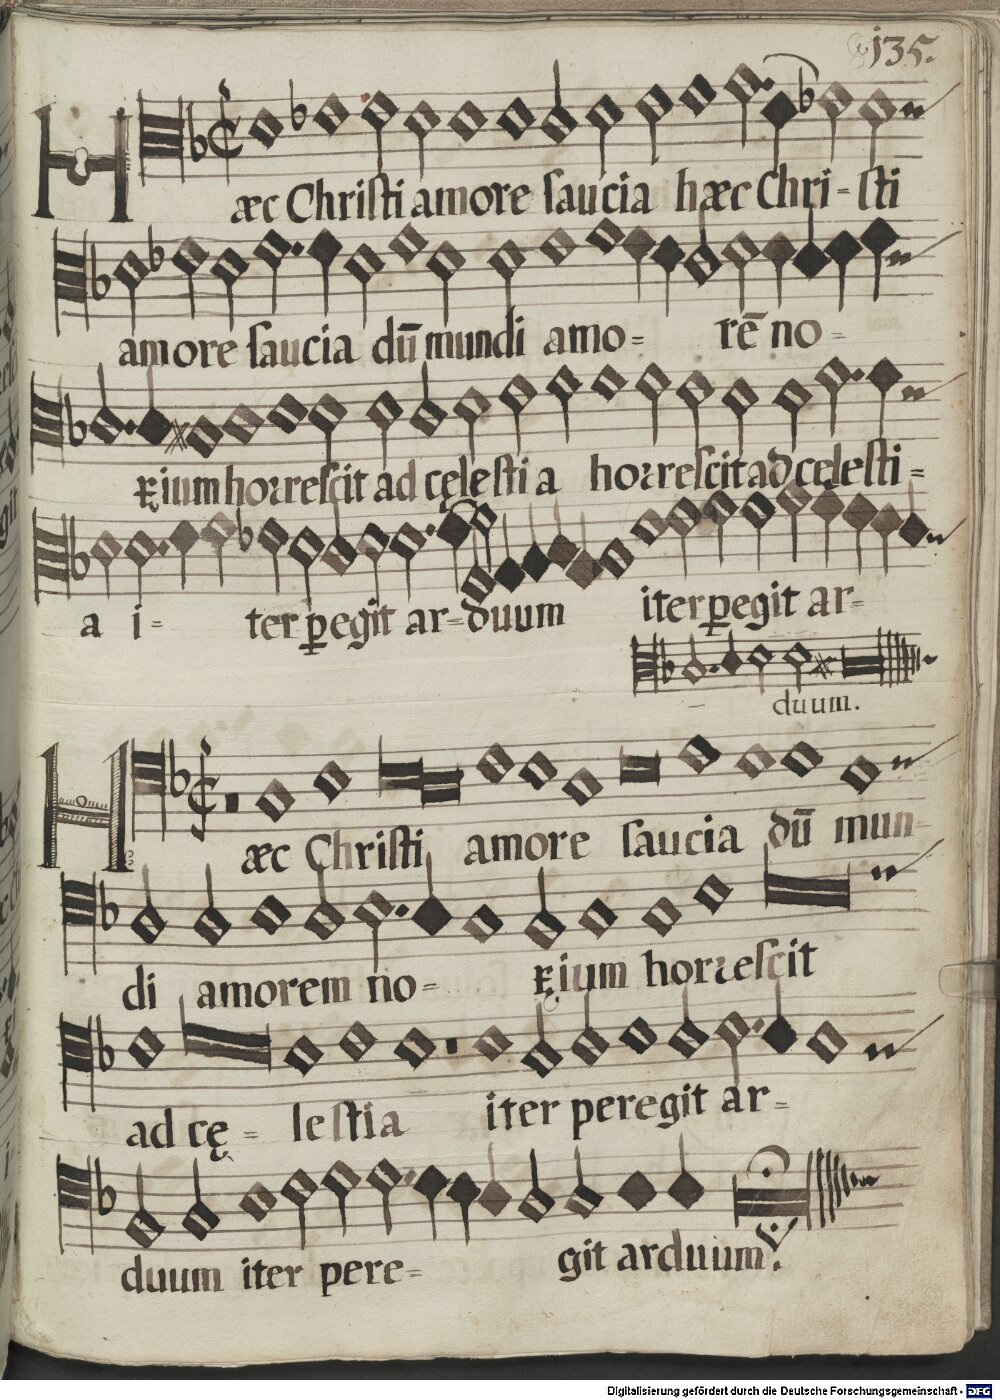 135.
Hæc Christi amore saucia hæc Chri-sti
amore saucia dū mundi amo= rē no=
xium horrescit ad cęlestia horrescit ad cęlesti=
a i= ter ꝑegit ar=duum iter ꝑegit ar=
duum.
Hæc Christi amore saucia dū mun=
di amorem no= xium horrescit
ad cę= lestia iter peregit ar=
duum iter pere= git arduum.
Digitalisierung gefördert durch die Deutsche Forschungsgemeinschaft - DFG